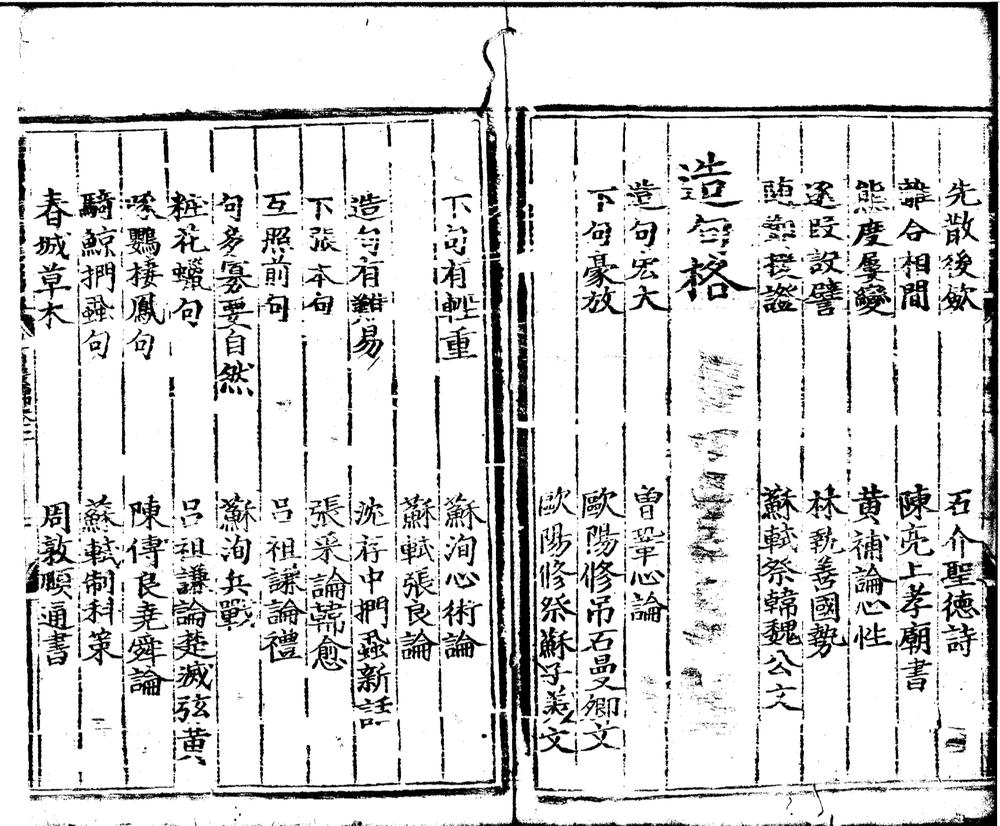 先散後斂 石介聖德詩
離合相間 陳亮上孝廟書
態度屢變 黃補論心性
逐段設譬 林執善國勢
援證 蘇軾祭韓魏公文
造句格
造句宏大 曾鞏心論
下句豪放 歐陽修吊石曼卿文
歐陽修祭蘇子美文
下句有輕重 蘇洵心術論
蘇軾張良論
造句有難易 沈存中捫蝨新話
下張本句 張采論韓愈
互照前句 呂祖謙論禮
句多寡要自然 蘇洵兵戰
粧花蠟句 呂祖謙論楚滅弦黃
啄鸚棲鳳句 陳傅良堯舜論
騎鯨捫蝨句 蘇軾制科策
春城草木 周敦頤通書